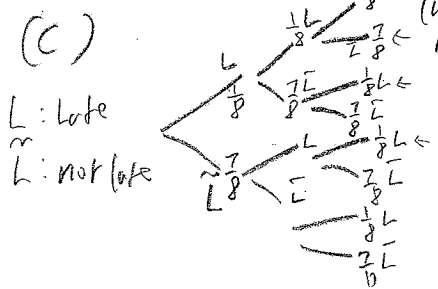 (C)
L : Late
L̃ : not late
L 1/8
L̃ 7/8
1/8 L
7/8 L̄
L
L̄
8
L 7/8 ←
1/8 L ←
7/8 L̄
1/8 L ←
7/8 L̄
1/8 L
7/8 L̄